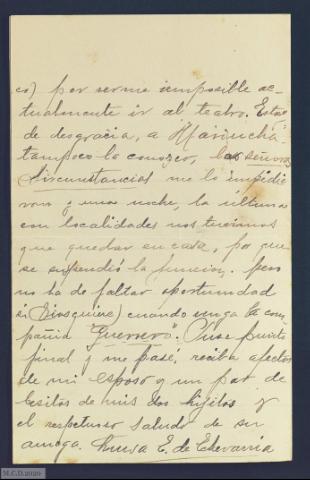 co) por serme imposible ac-
tualmente ir al teatro. Estoy
de desgracia, a "Mariucha"
tampoco la conozco, las señoras
circunstancias me lo impidie
ron y una noche, la última
con localidades nos tuvimos
que quedar en casa, por que
se suspendió la funcion. pero
no ha de faltar oportunidad
si Dios quiere) cuando venga la com
pañia "Guerrero". Puse punto
final y me pasé. reciba afectos
de mi esposo y un par de
besitos de mis dos hijitos y
el respetuoso saludo de su
amiga. Luisa E. de Echevarria
M.C.D. 2020